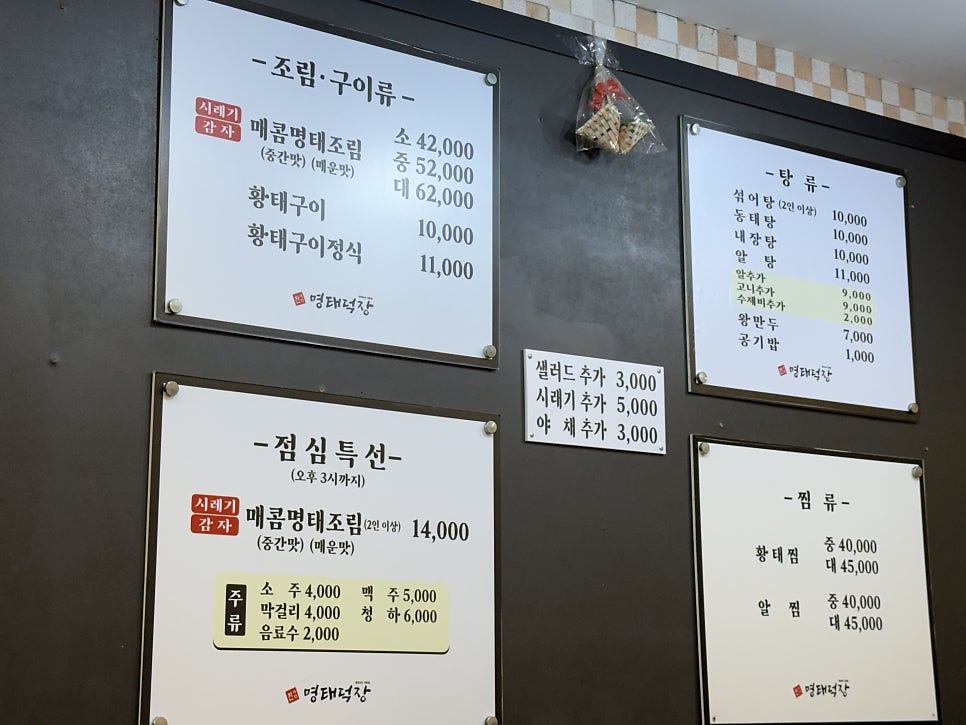 -조림·구이류-
시래기
감자
매콤명태조림 소 42,000
(중간맛) (매운맛) 중 52,000
대 62,000
황태구이 10,000
황태구이정식 11,000
명태덕장
-탕 류-
섞어탕 (2인 이상) 10,000
동태탕 10,000
내장탕 10,000
알 탕 11,000
알추가 9,000
고니추가 9,000
수제비추가 2,000
왕만두 7,000
공기밥 1,000
명태덕장
샐러드 추가 3,000
시래기 추가 5,000
야 채 추가 3,000
-점심특선-
(오후 3시까지)
시래기
감자
매콤명태조림 (2인 이상) 14,000
(중간맛) (매운맛)
주류
소 주 4,000 맥 주 5,000
막걸리 4,000 청 하 6,000
음료수 2,000
명태덕장
-찜 류-
황태찜 중 40,000
대 45,000
알 찜 중 40,000
대 45,000
명태덕장